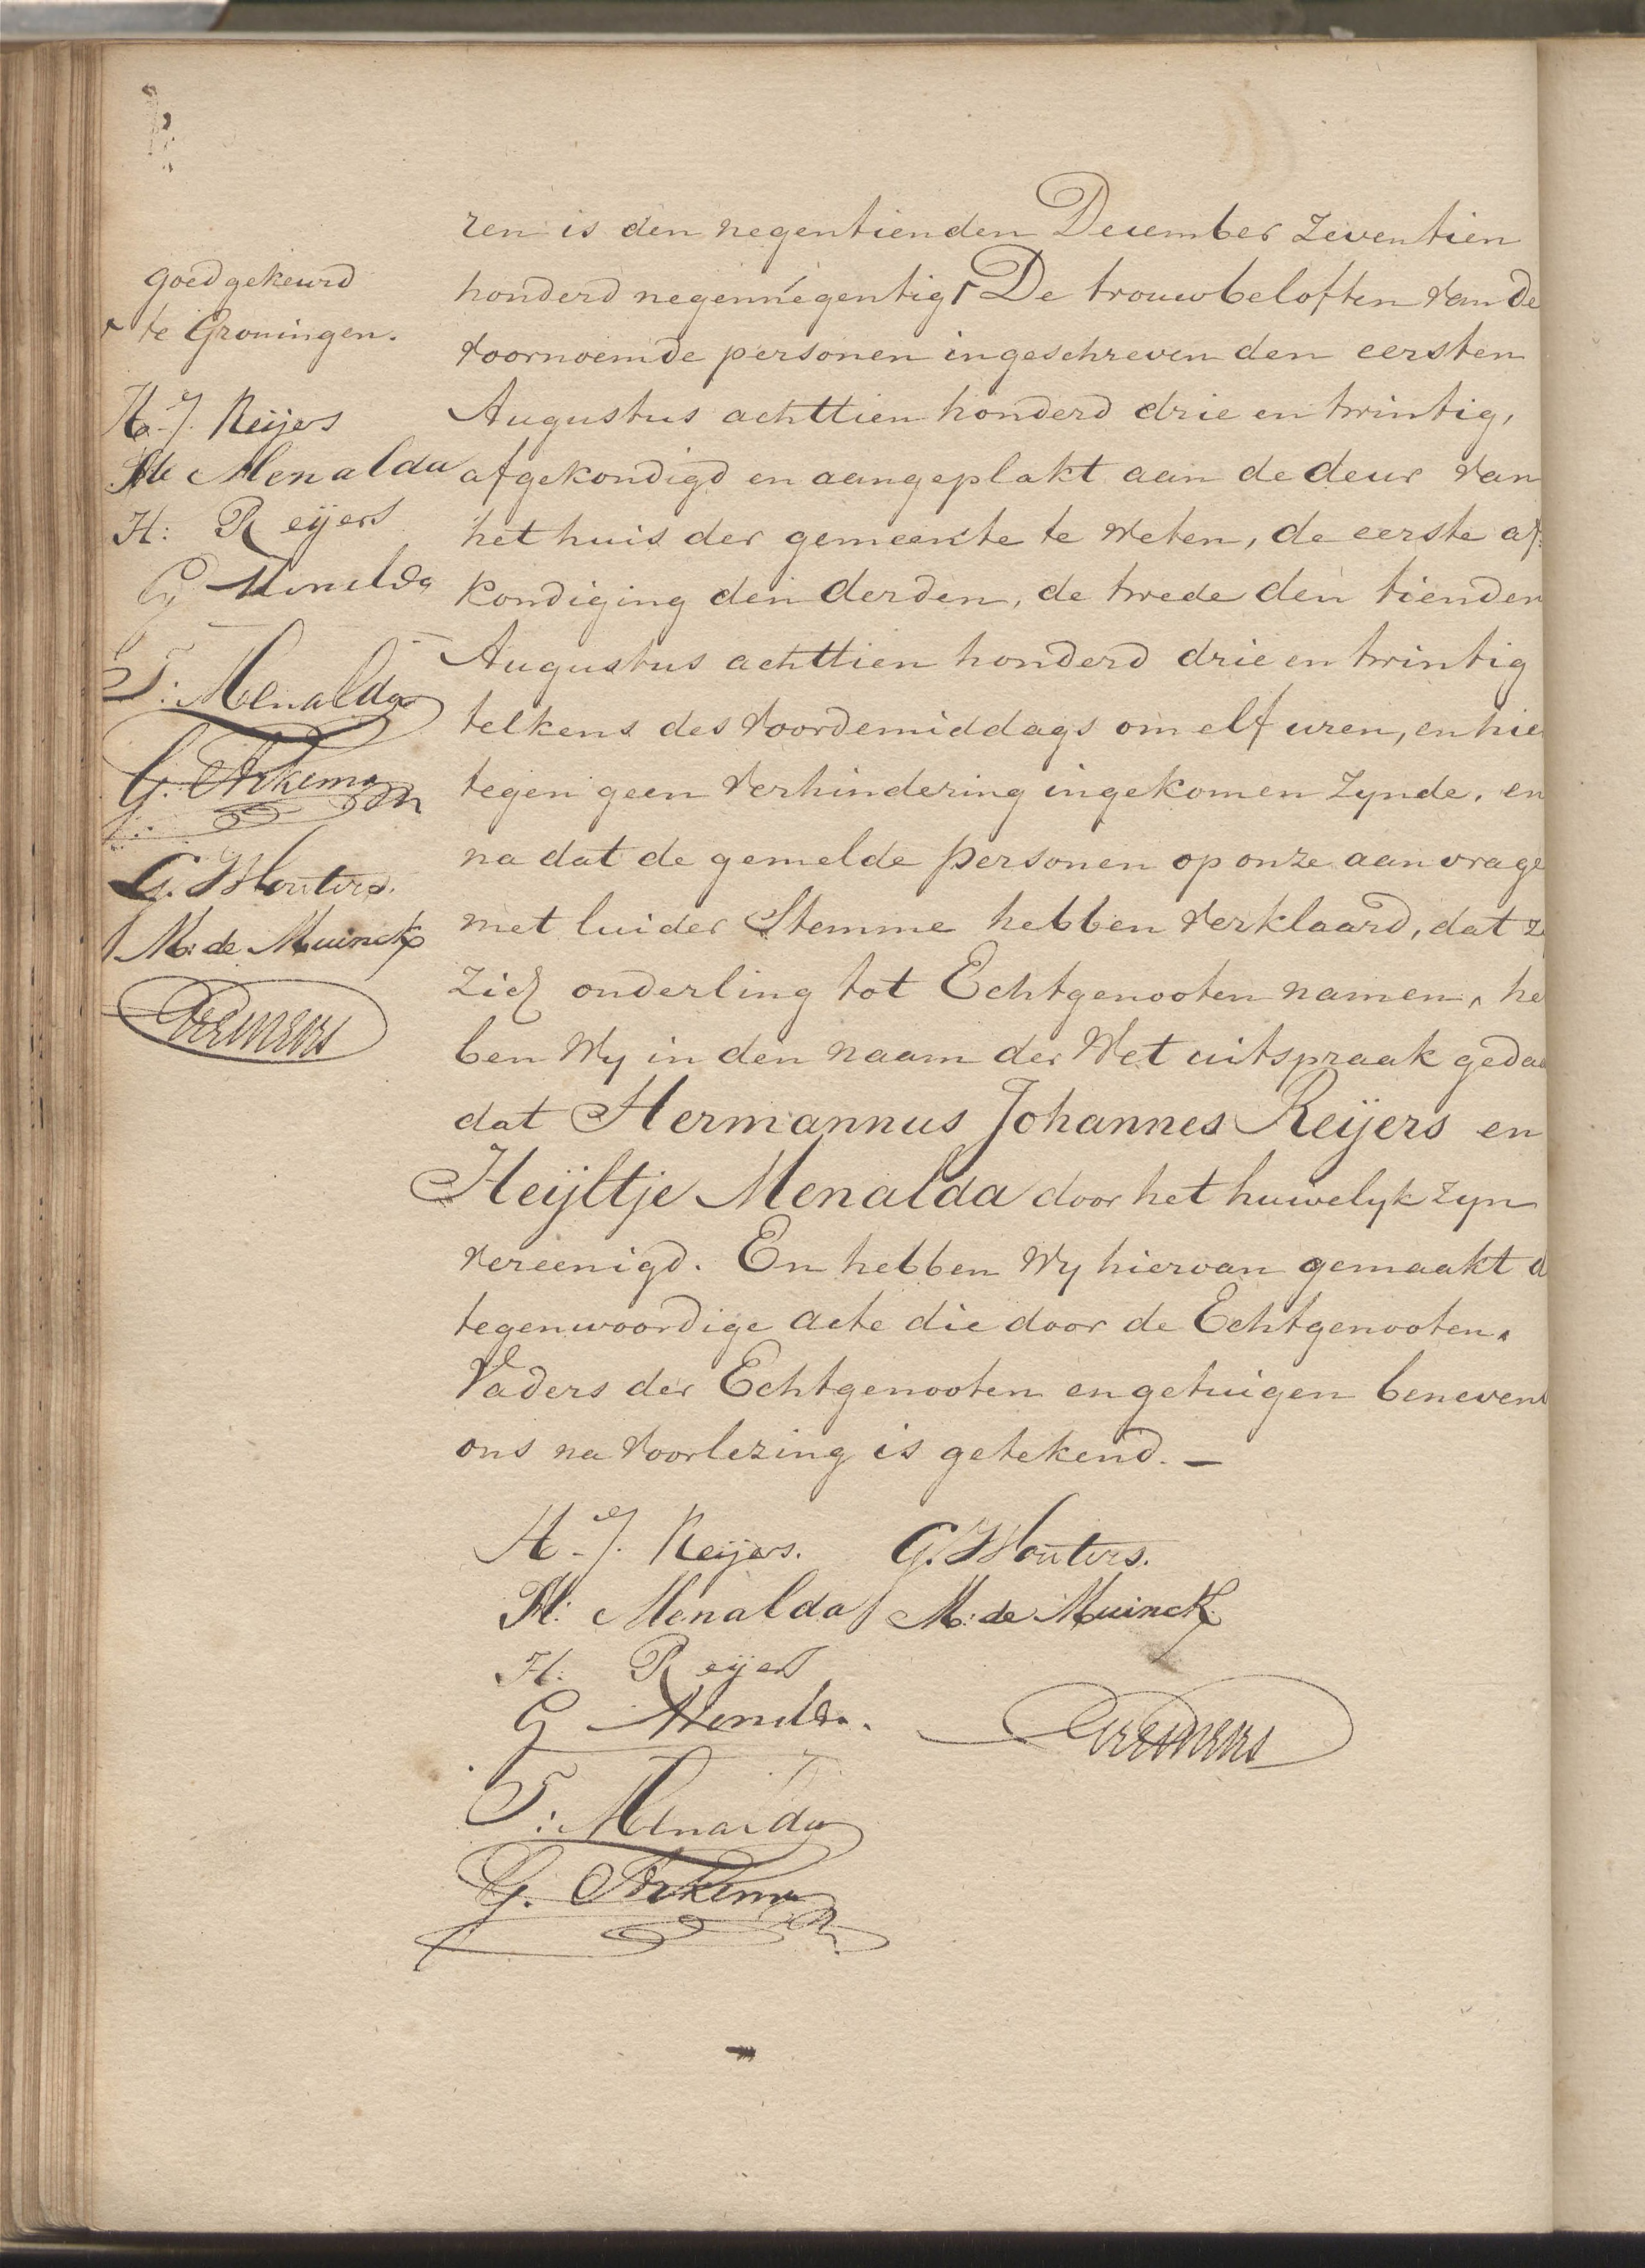 goedgekeurd
te Groningen.
H. J. Reijers
H: Menalda
H: Reijers
G Menalda
T: Menalda
G. Arkema
G. Wouters.
M: de Muinck
ren is den negentienden December zeventien
honderd negennegentig De trouwbeloften van de
voornoemde personen ingeschreven den eersten
Augustus achttien honderd drie en twintig,
afgekondigd en aangeplakt aan de deur van
het huis der gemeente te weten, de eerste af:
kondiging den derden, de twede den tienden
Augustus achttien honderd drie en twintig
telkens des voordemiddags om elf uren, en hie
tegen geen verhindering ingekomen zynde, en
na dat de gemelde personen op onze aanvrage
met luider Stemme hebben verklaard, dat z
zich onderling tot Echtgenooten namen, he
ben wy in den naam der Wet uitspraak gedaa
dat Hermannus Johannes Reijers en
Heijltje Menalda door het huwelyk zyn
vereenigd. En hebben wy hiervan gemaakt d
tegenwoordige acte die door de Echtgenooten,
Vaders der Echtgenooten en getuigen benevens
ons na voorlezing is getekend. —
H. J. Reijers. G. Wouters.
H: Menalda M: de Muinck
H: Reijers
G Menalda.
T: Menalda
G. Arkema